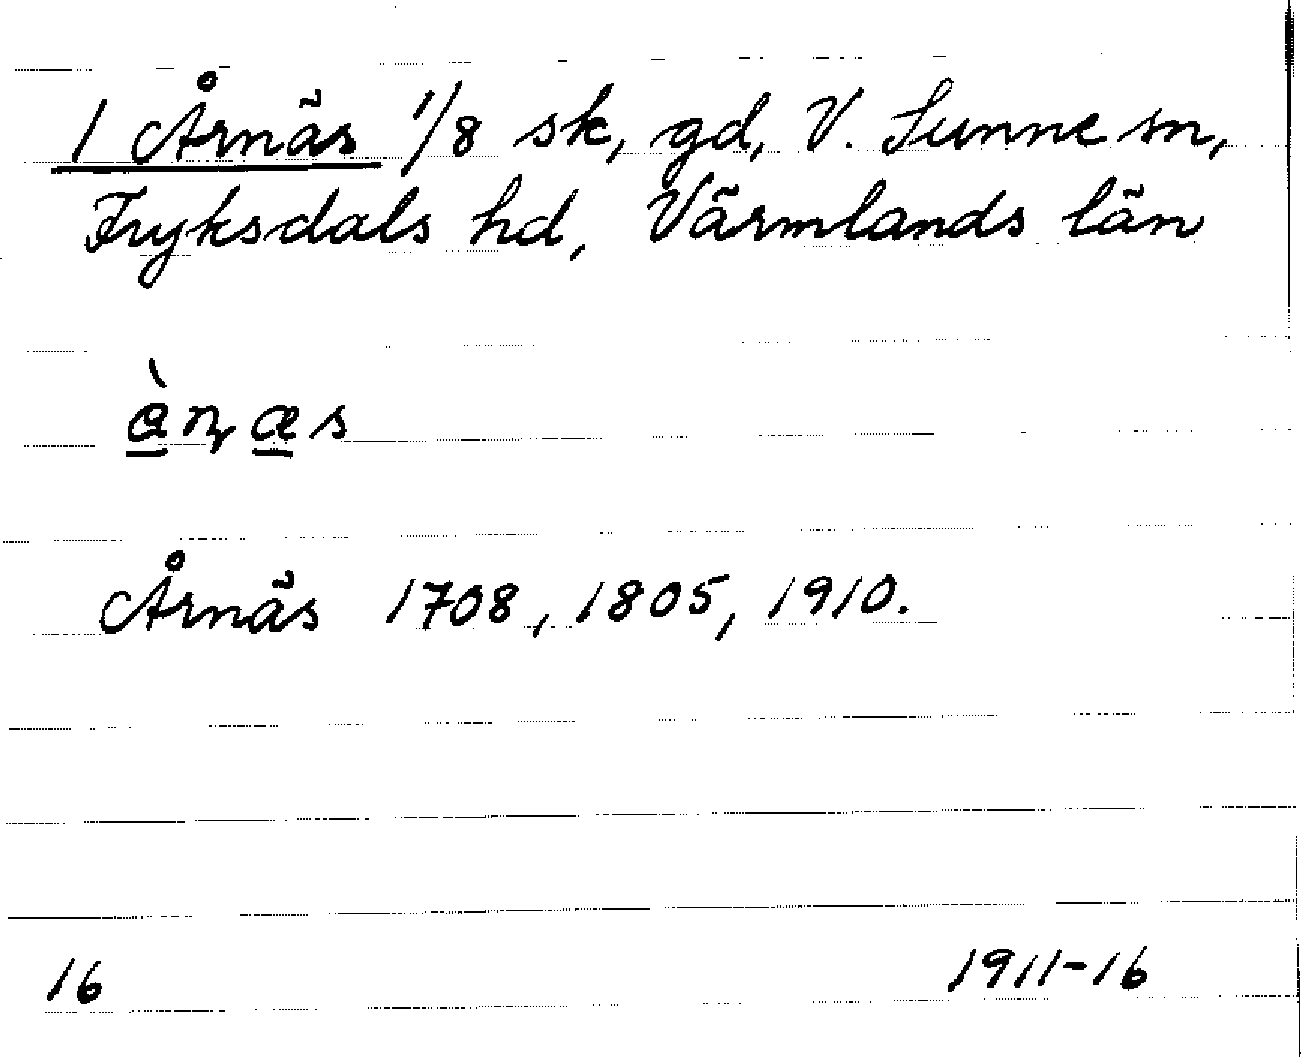 1 Årnäs 1/8 sk, gd, V. Sunne sn,
Fryksdals hd, Värmlands län
Årnäs 1708, 1805, 1910.
16
1911-16